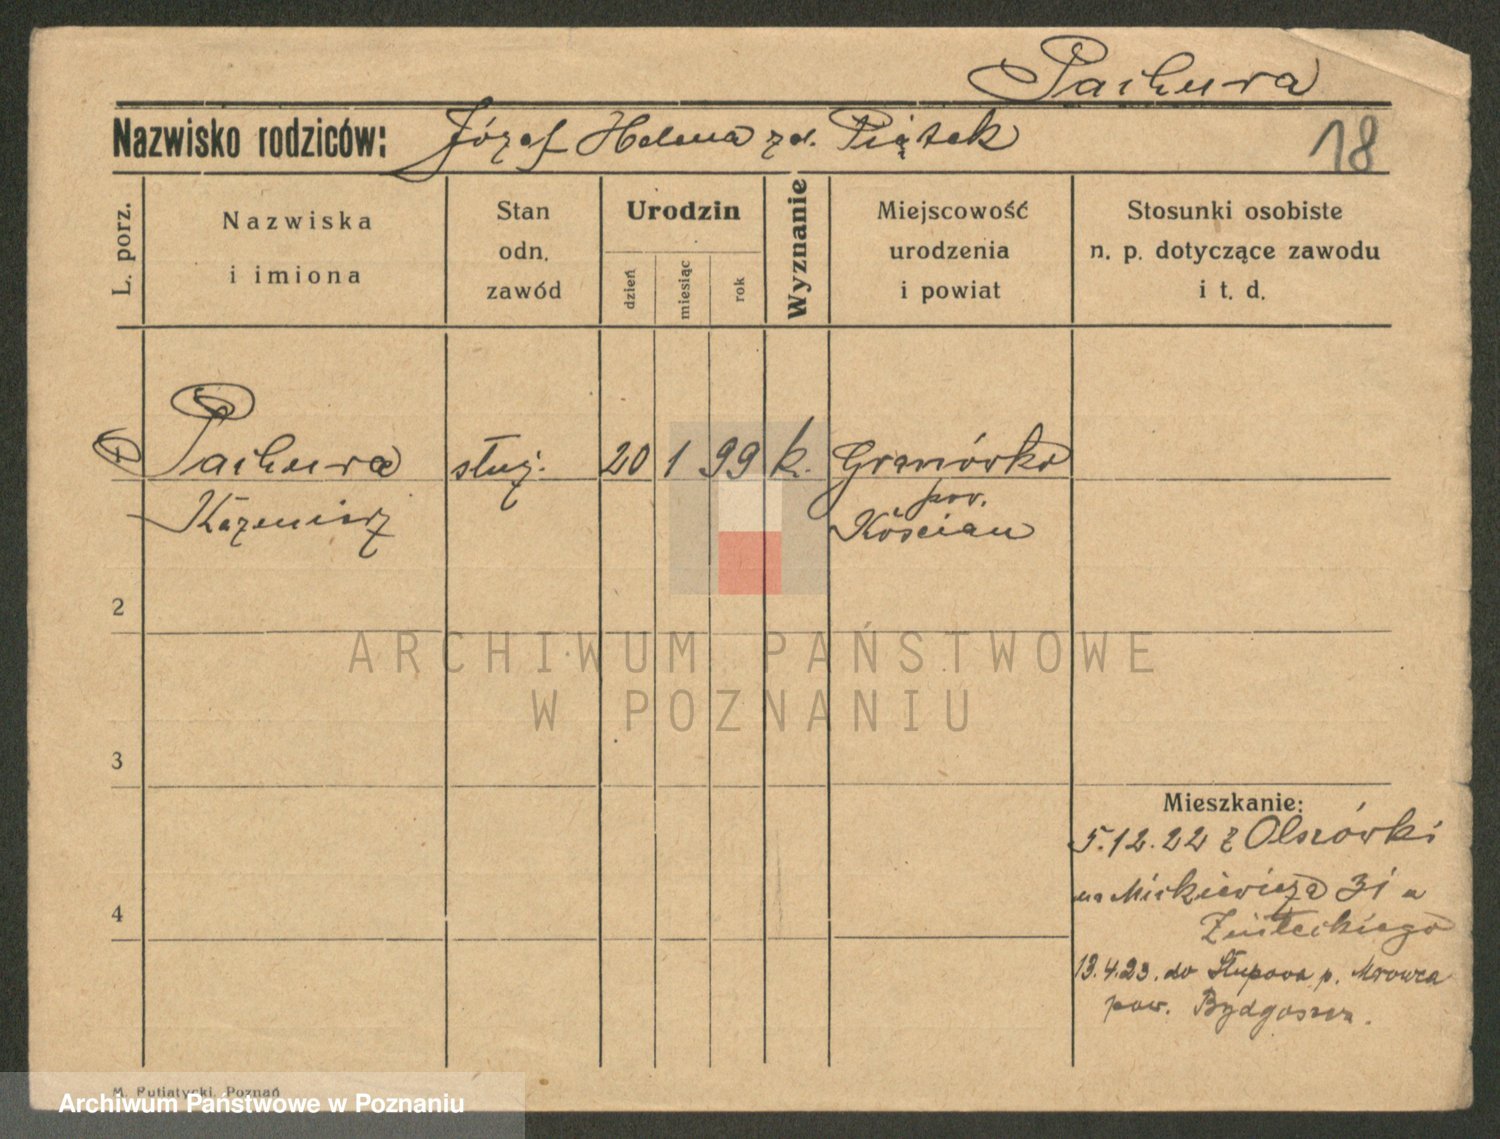 Pachura
Nazwisko rodziców: Józef Helena zd. Piątek
18
L. porz.
Nazwiska
i imiona
Stan
odn.
zawód
Urodzin
dzień
miesiąc
rok
Wyznanie
Miejscowość
urodzenia
i powiat
Stosunki osobiste
n. p. dotyczące zawodu
i t. d.
Pachura służ. 20 1 99 k. Granówko
Kazimierz
pow.
Kościan
2
ARCHIWUM PAŃSTWOWE
W POZNANIU
3
Mieszkanie:
5.12.22 z Olszówki
na Mickiewicza 31 u
4
13.4.23. do Słupowa p. Mrowza
pow. Bydgoszcz.
M. Putiatycki, Poznań
Archiwum Państwowe w Poznaniu